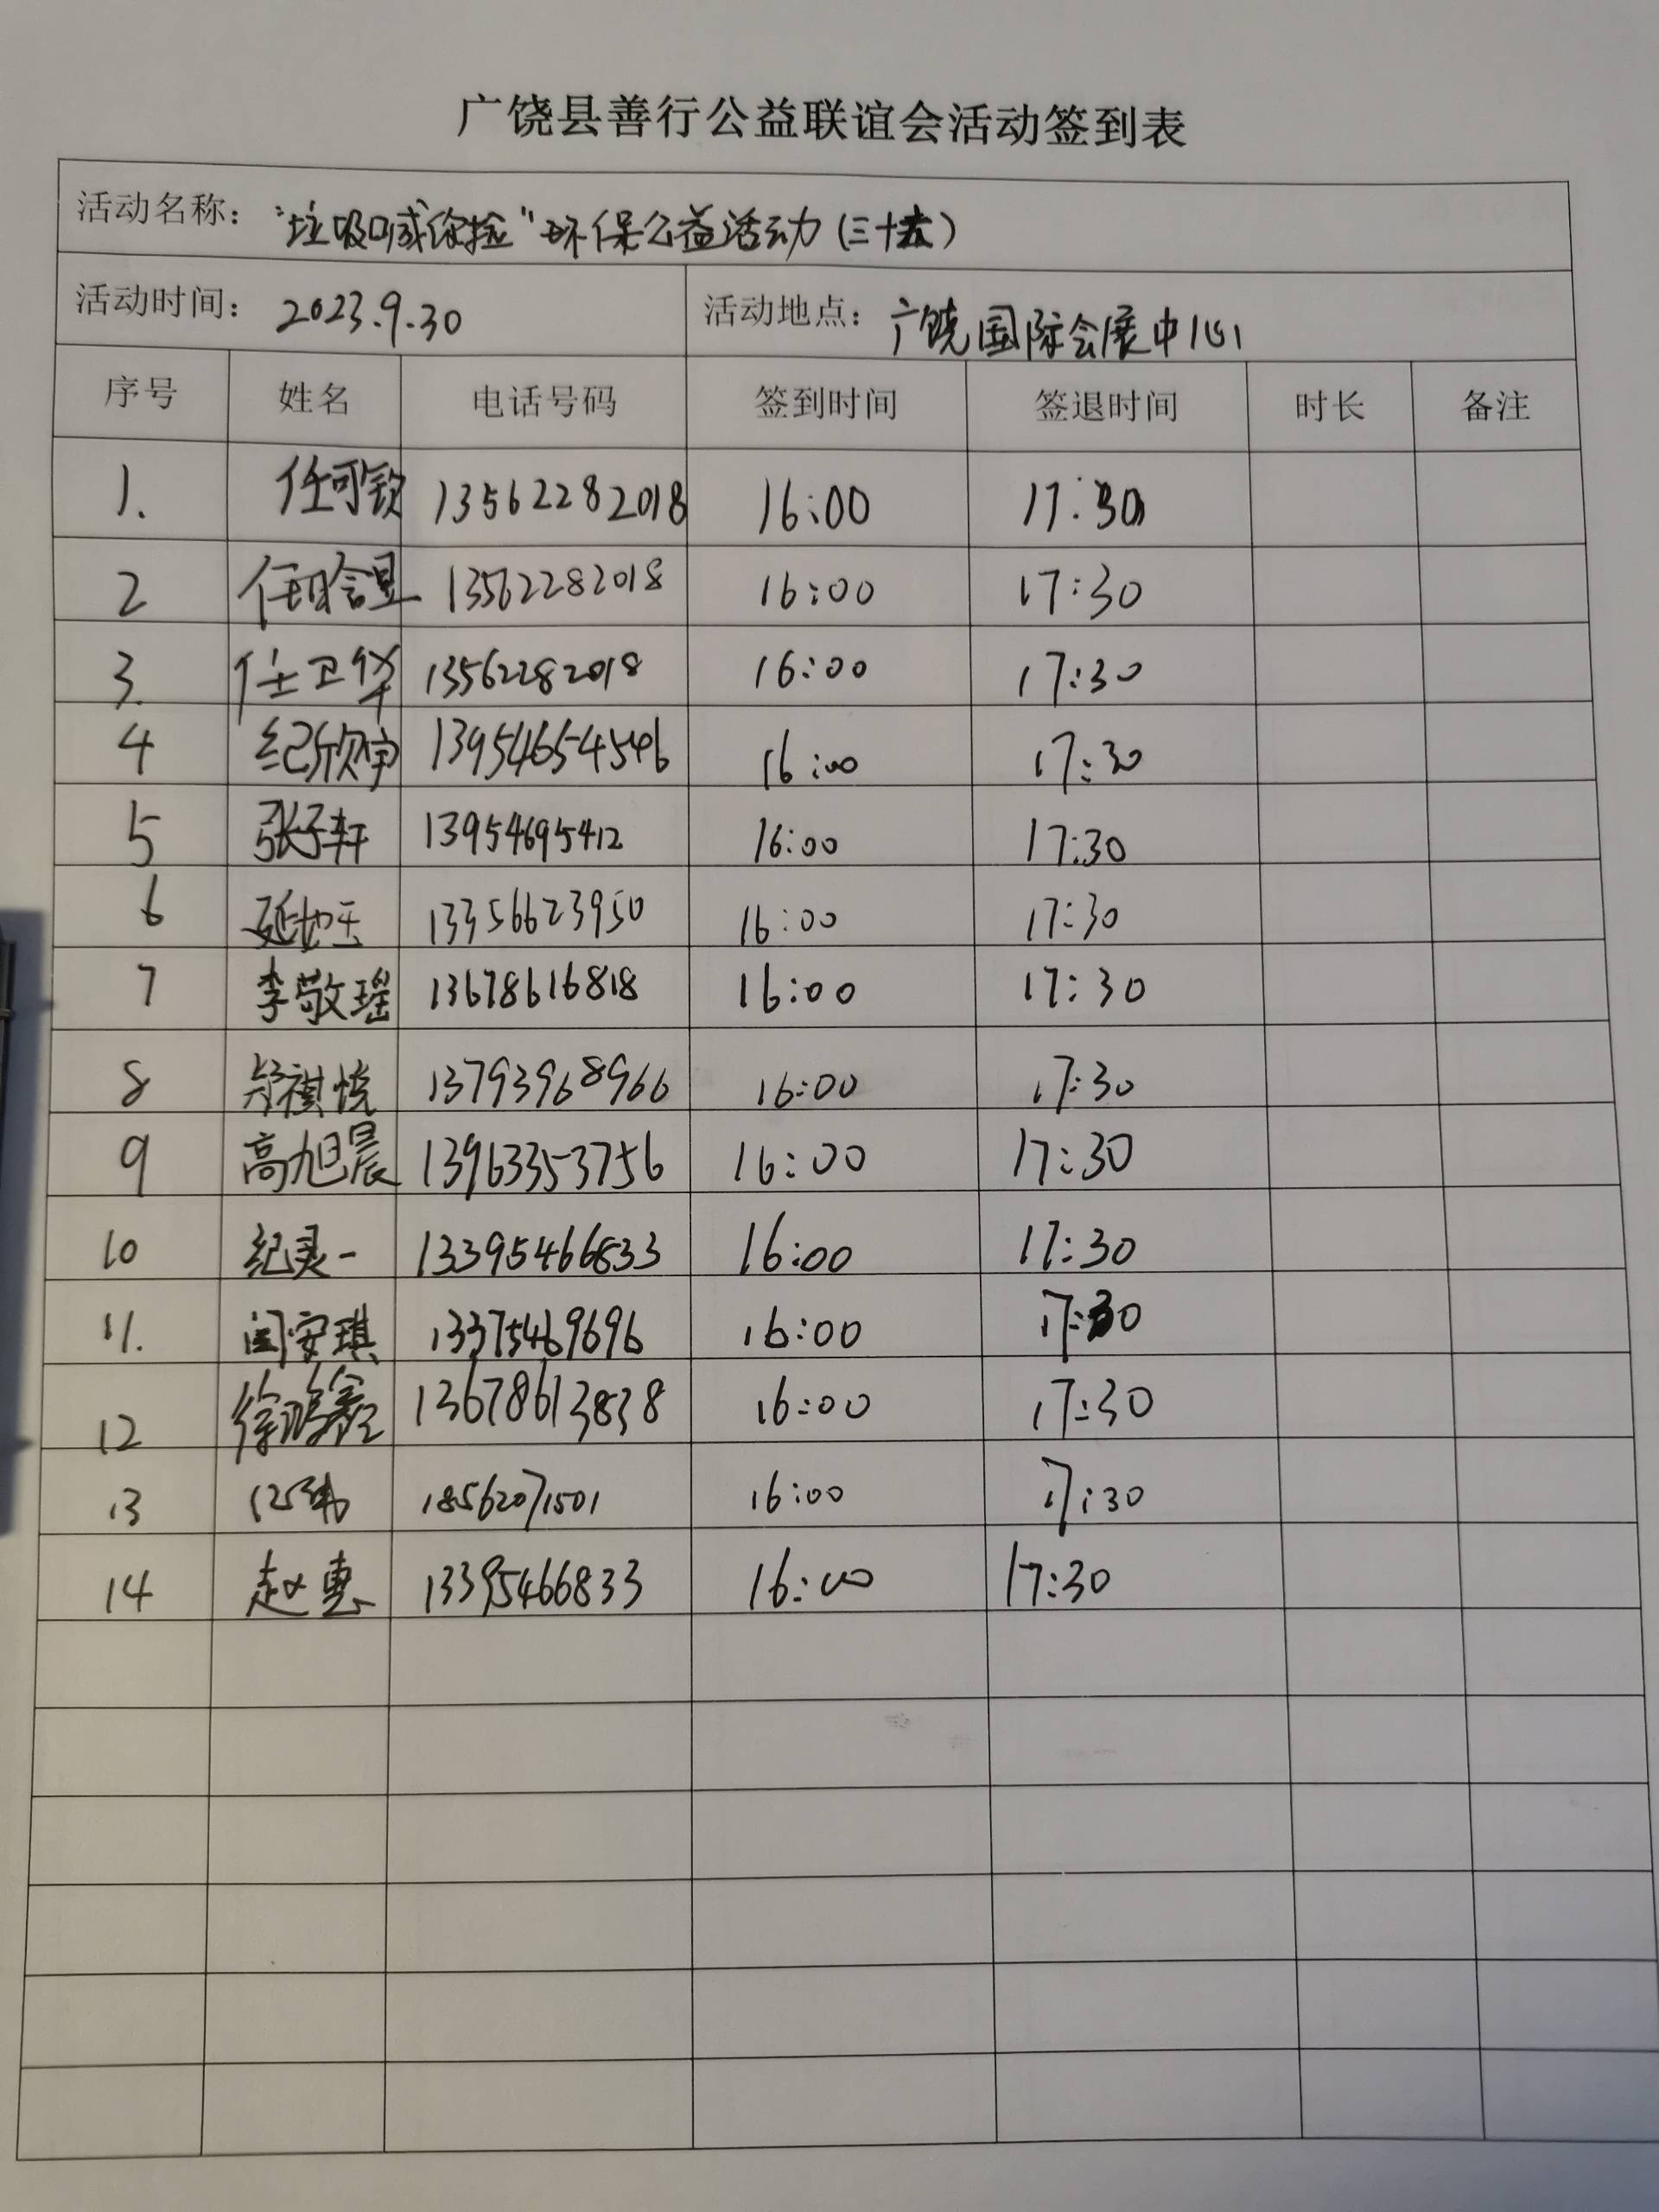 广饶县善行公益联谊会活动签到表
活动名称：“垃圾喊你捡”环保公益活动（三十）
活动时间：2023.9.30 活动地点：广饶国际会展中心
序号 姓名 电话号码 签到时间 签退时间 时长 备注
1. 任可钦 13562282018 16:00 17:30
2 13562282018 16:00 17:30
3. 任卫华 13562282018 16:00 17:30
4 纪欣宇 13954654546 16:00 17:30
5 张子轩 13954695412 16:00 17:30
6 13356623950 16:00 17:30
7 李敬瑶 13678616818 16:00 17:30
8 祺悦 13793968966 16:00 17:30
9 高旭晨 13963353756 16:00 17:30
10 纪灵一 13395466833 16:00 17:30
11. 闫安琪 13375469696 16:00 17:30
12 徐鸿 13678613838 16:00 17:30
13 18562071501 16:00 17:30
14 赵惠 13395466833 16:00 17:30